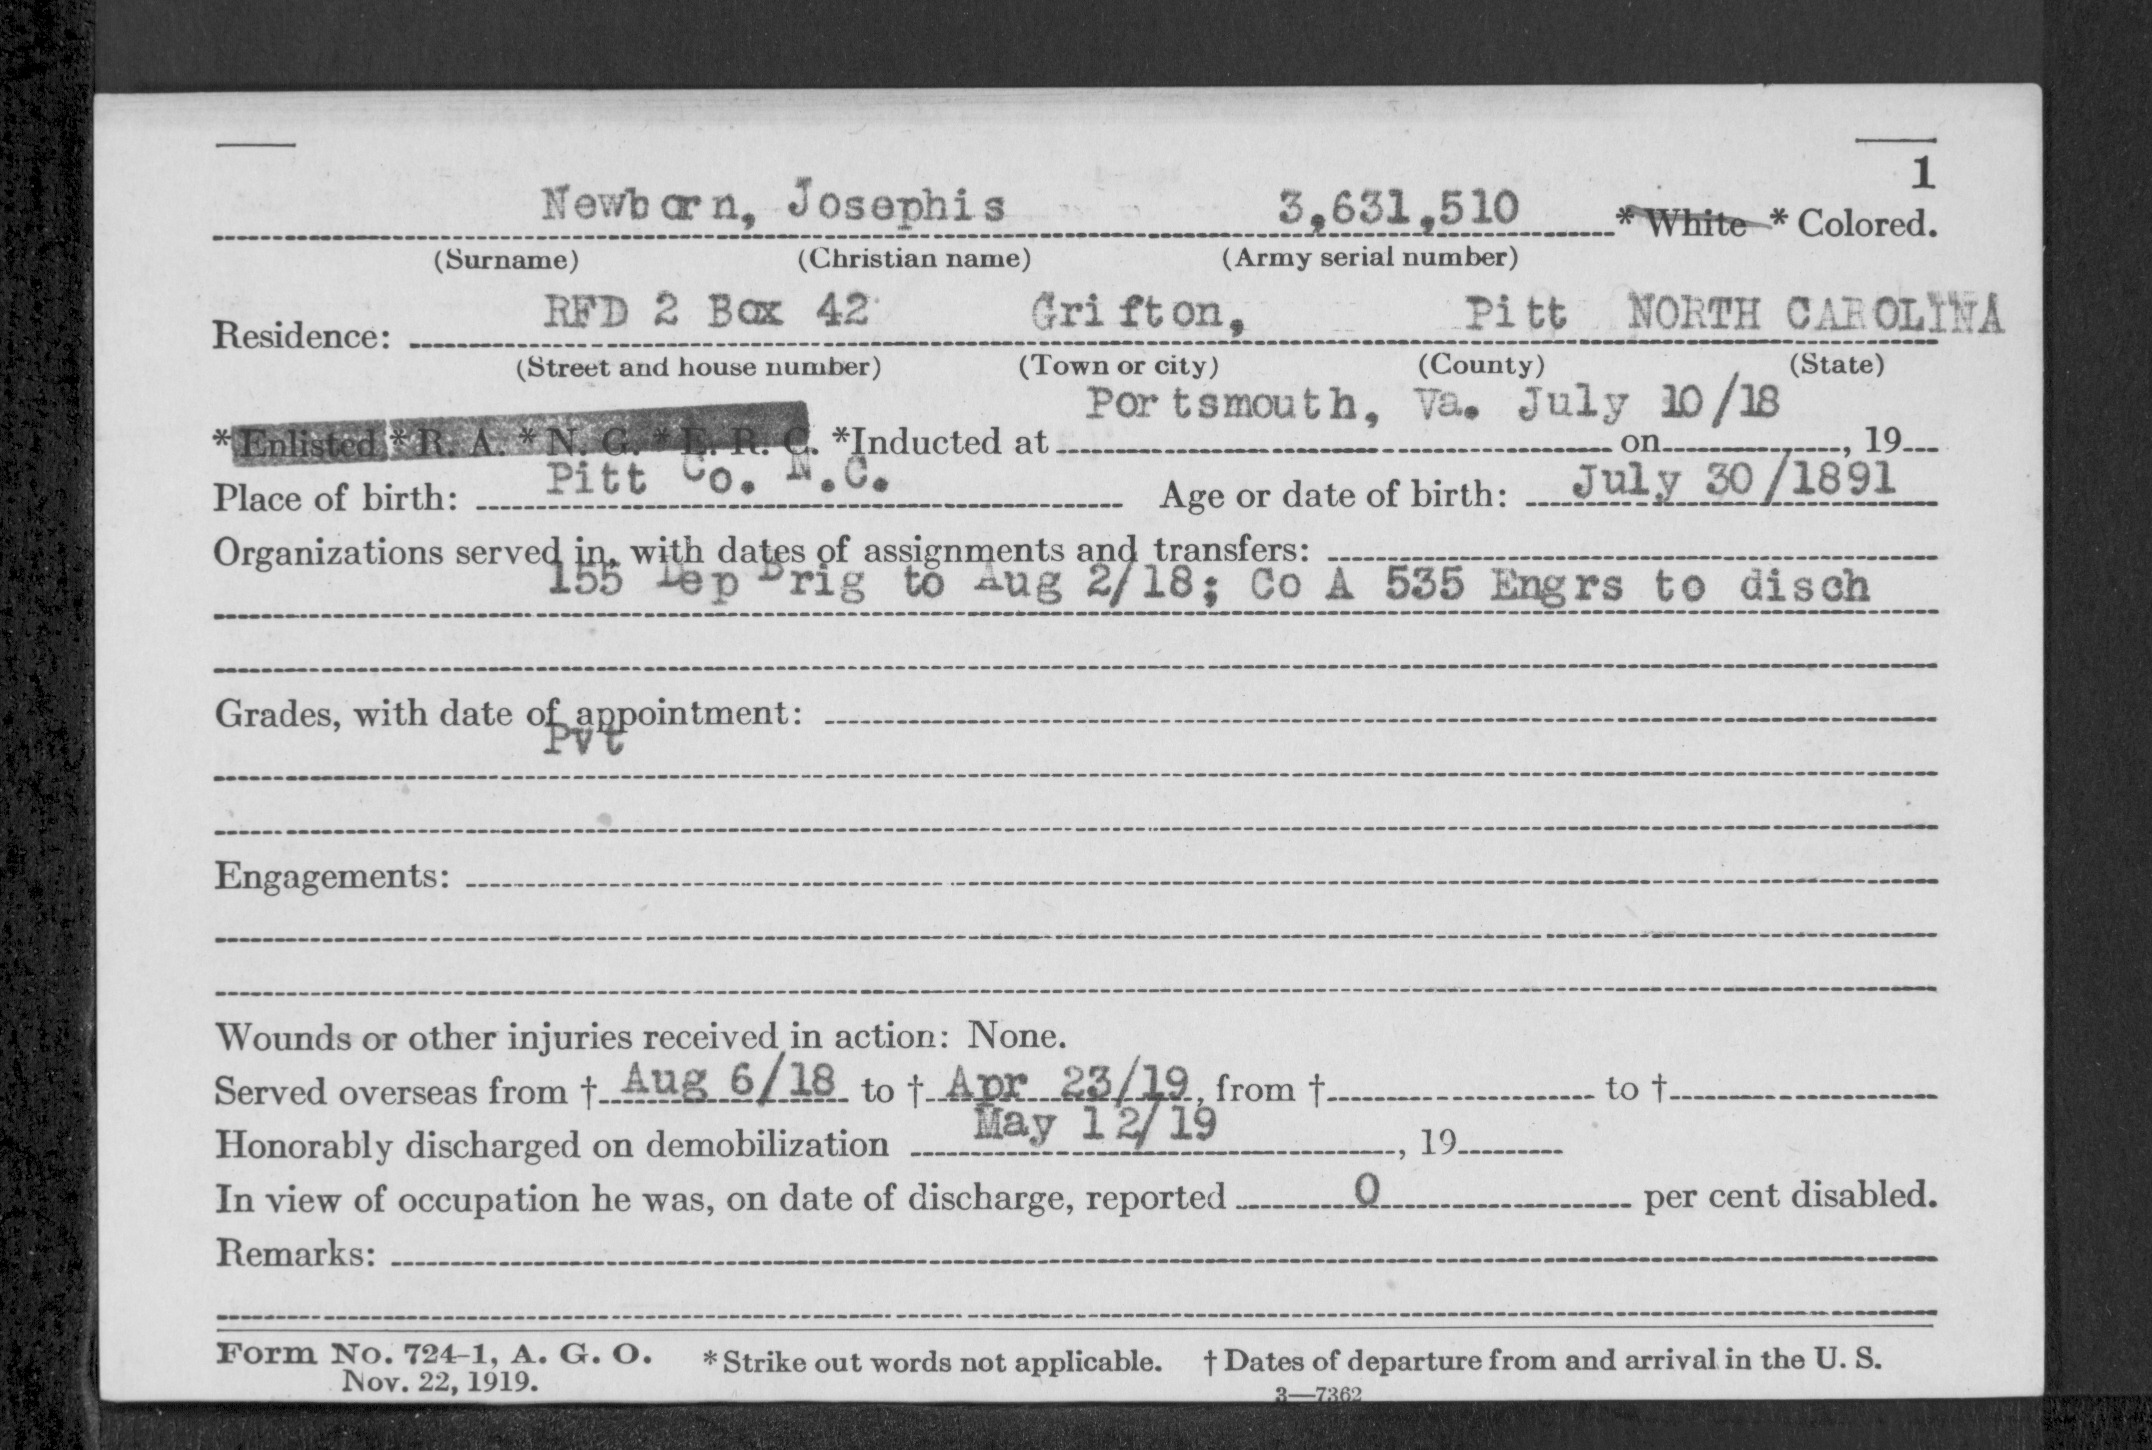 1
Newborn, Josephis 3,631,510 * White * Colored.
(Surname) (Christian name) (Army serial number)
RFD 2 Box 42 Grifton, Pitt NORTH CAROLINA
Residence:
(Street and house number) (Town or city) (County) (State)
Portsmouth, Va. July 10/18
* Enlisted * R. A. * N. G. * E. R. C. *Inducted at on , 19
Pitt Co. N.C. July 30/1891
Place of birth: Age or date of birth:
Organizations served in, with dates of assignments and transfers:
155 Dep Brig to Aug 2/18; Co A 535 Engrs to disch
Grades, with date of appointment:
Pvt
Engagements:
Wounds or other injuries received in action: None.
Served overseas from † Aug 6/18 to † Apr 23/19, from † to †
May 12/19
Honorably discharged on demobilization , 19
In view of occupation he was, on date of discharge, reported 0 per cent disabled.
Remarks:
Form No. 724-1, A. G. O. * Strike out words not applicable. † Dates of departure from and arrival in the U. S.
Nov. 22, 1919.
3—7362